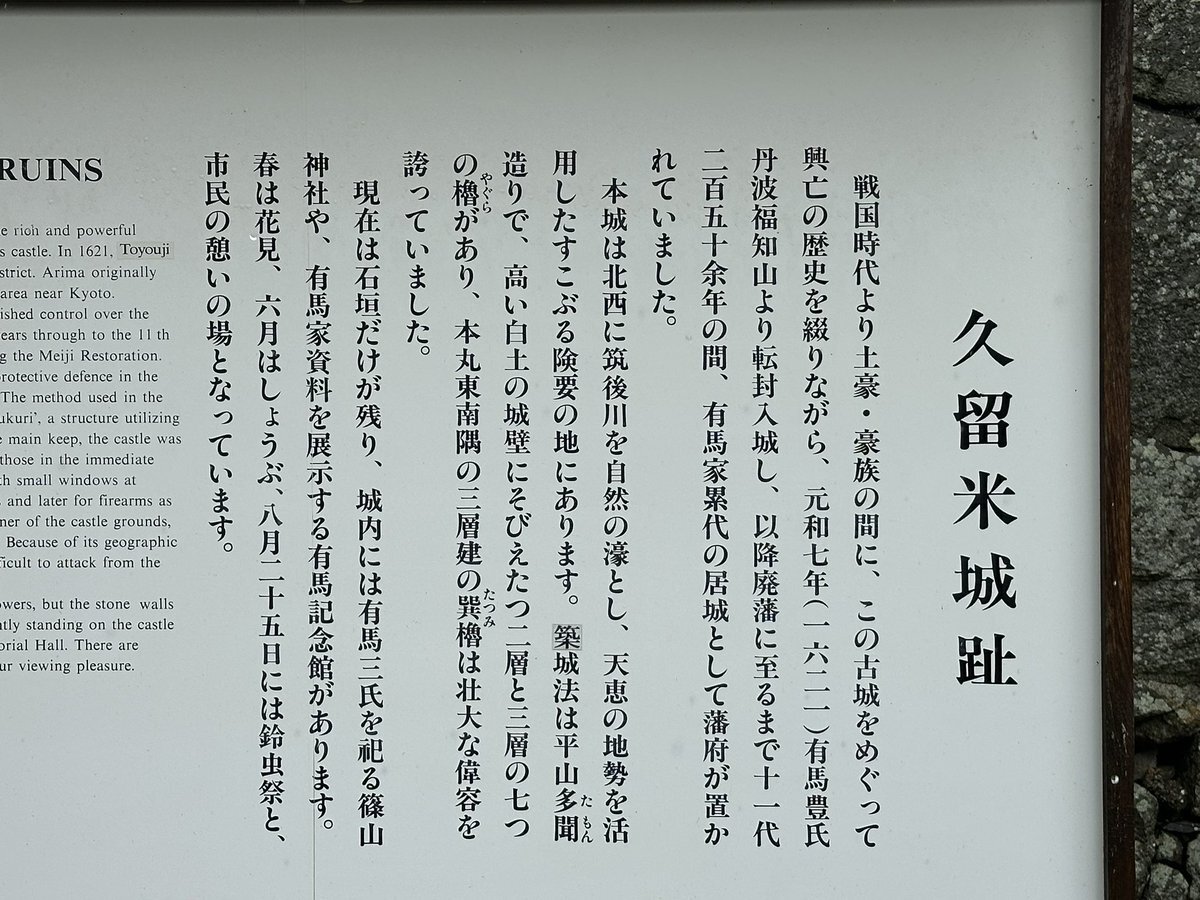 久留米城趾
戦国時代より土豪・豪族の間に、この古城をめぐって
興亡の歴史を綴りながら、元和七年(一六二一)有馬豊氏
丹波福知山より転封入城し、以降廃藩に至るまで十一代
二百五十余年の間、有馬家累代の居城として藩府が置か
れていました。
本城は北西に筑後川を自然の濠とし、天恵の地勢を活
用したすこぶる険要の地にあります。築城法は平山多聞
たもん
造りで、高い白土の城壁にそびえたつ二層と三層の七つ
の櫓があり、本丸東南隅の三層建の巽櫓は壮大な偉容を
やぐら
たつみ
誇っていました。
現在は石垣だけが残り、城内には有馬三氏を祀る篠山
神社や、有馬家資料を展示する有馬記念館があります。
春は花見、六月はしょうぶ、八月二十五日には鈴虫祭と、
市民の憩いの場となっています。
RUINS
e rich and powerful
s castle. In 1621, Toyouji
strict. Arima originally
area near Kyoto.
ished control over the
ears through to the 11 th
g the Meiji Restoration.
rotective defence in the
The method used in the
ukuri', a structure utilizing
e main keep, the castle was
those in the immediate
th small windows at
s and later for firearms as
ner of the castle grounds,
Because of its geographic
ficult to attack from the
owers, but the stone walls
ntly standing on the castle
orial Hall. There are
ur viewing pleasure.